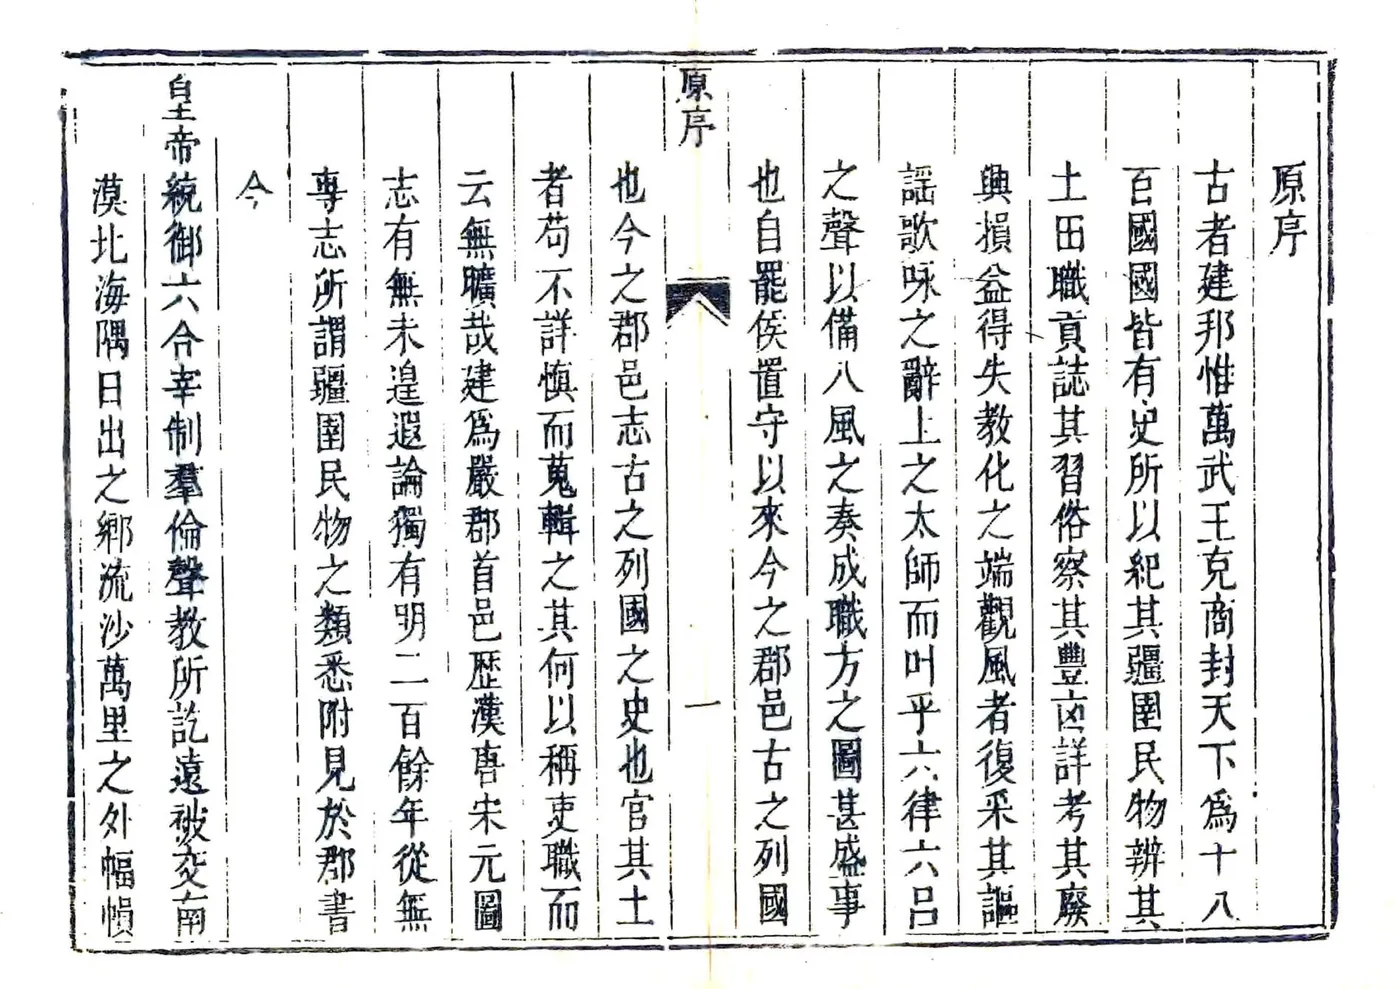 原序
古者建邦惟萬武王克商封天下爲十八
百國國皆有史所以紀其疆圉民物辨其
土田職貢誌其習俗察其豐凶詳考其廢
興損益得失教化之端觀風者復采其謳
謡歌咏之辭上之太師而叶乎六律六吕
之聲以備八風之奏成職方之圖甚盛事
也自罷侯置守以來今之郡邑古之列國
原序
一
也今之郡邑志古之列國之史也官其土
者苟不詳慎而蒐輯之其何以稱吏職而
云無曠哉建爲嚴郡首邑歷漢唐宋元圖
志有無未遑遐論獨有明二百餘年從無
專志所謂疆圉民物之類悉附見於郡書
今
皇帝統御六合宰制羣倫聲教所訖遠被交南
漠北海隅日出之鄉流沙萬里之外幅幀